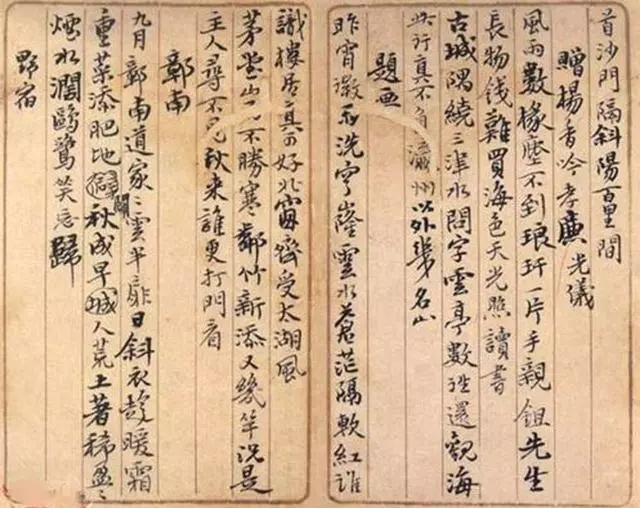 首沙門隔斜陽百里間
贈楊香吟孝廉光儀
風雨數椽塵不到琅玕一片手親鉏先生
長物錢難買海色天光照讀書
古城隅繞三津水問字雲亭數往還觀海
此行真不負瀛州以外幾名山
題画
昨宵激雨洗穹窿雲水蒼茫隔軟紅誰
識樓居真可好北窗齊受太湖風
茅堂 不勝寒鄰竹新添又幾竿況是
主人尋不見秋来誰更打門看
郭南
九月郭南道家〻雲半扉日斜衣趁暖霜
重菜添肥地闢秋成早城人荒土著稀盈〻
煙水濶鷗鷺笑忘歸
野宿